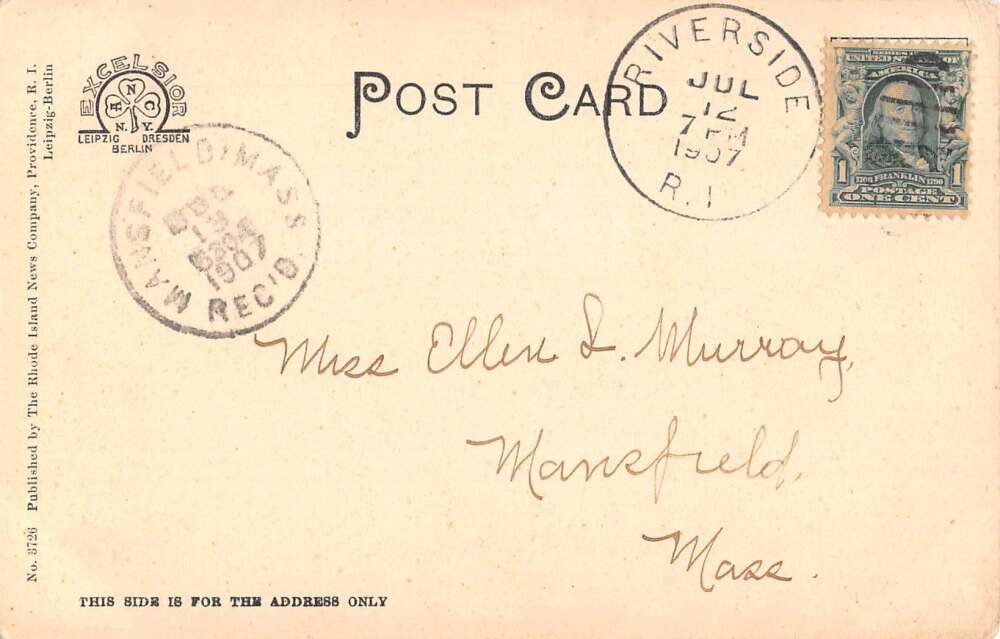 POST CARD
EXCELSIOR
R N C
N.Y.
LEIPZIG DRESDEN
BERLIN
RIVERSIDE
JUL
12
7 PM
1907
R. I
SERIES 1902
UNITED STATES OF
AMERICA
1 1706 FRANKLIN 1790 1
POSTAGE
ONE CENT
MANSFIELD, MASS.
1907
REC'D.
Miss Ellen L. Murray,
Mansfield,
Mass.
THIS SIDE IS FOR THE ADDRESS ONLY
No. 3726 Published by The Rhode Island News Company, Providence, R. I.
Leipzig-Berlin